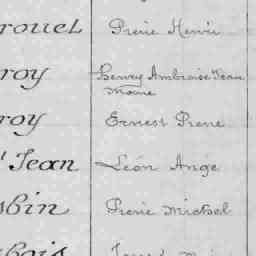 rouel Pierre Henri
roy Henry Ambroise Jean
Marie
roy Ernest Pierre
Jean Léon Ange
sbin Pierre Michel